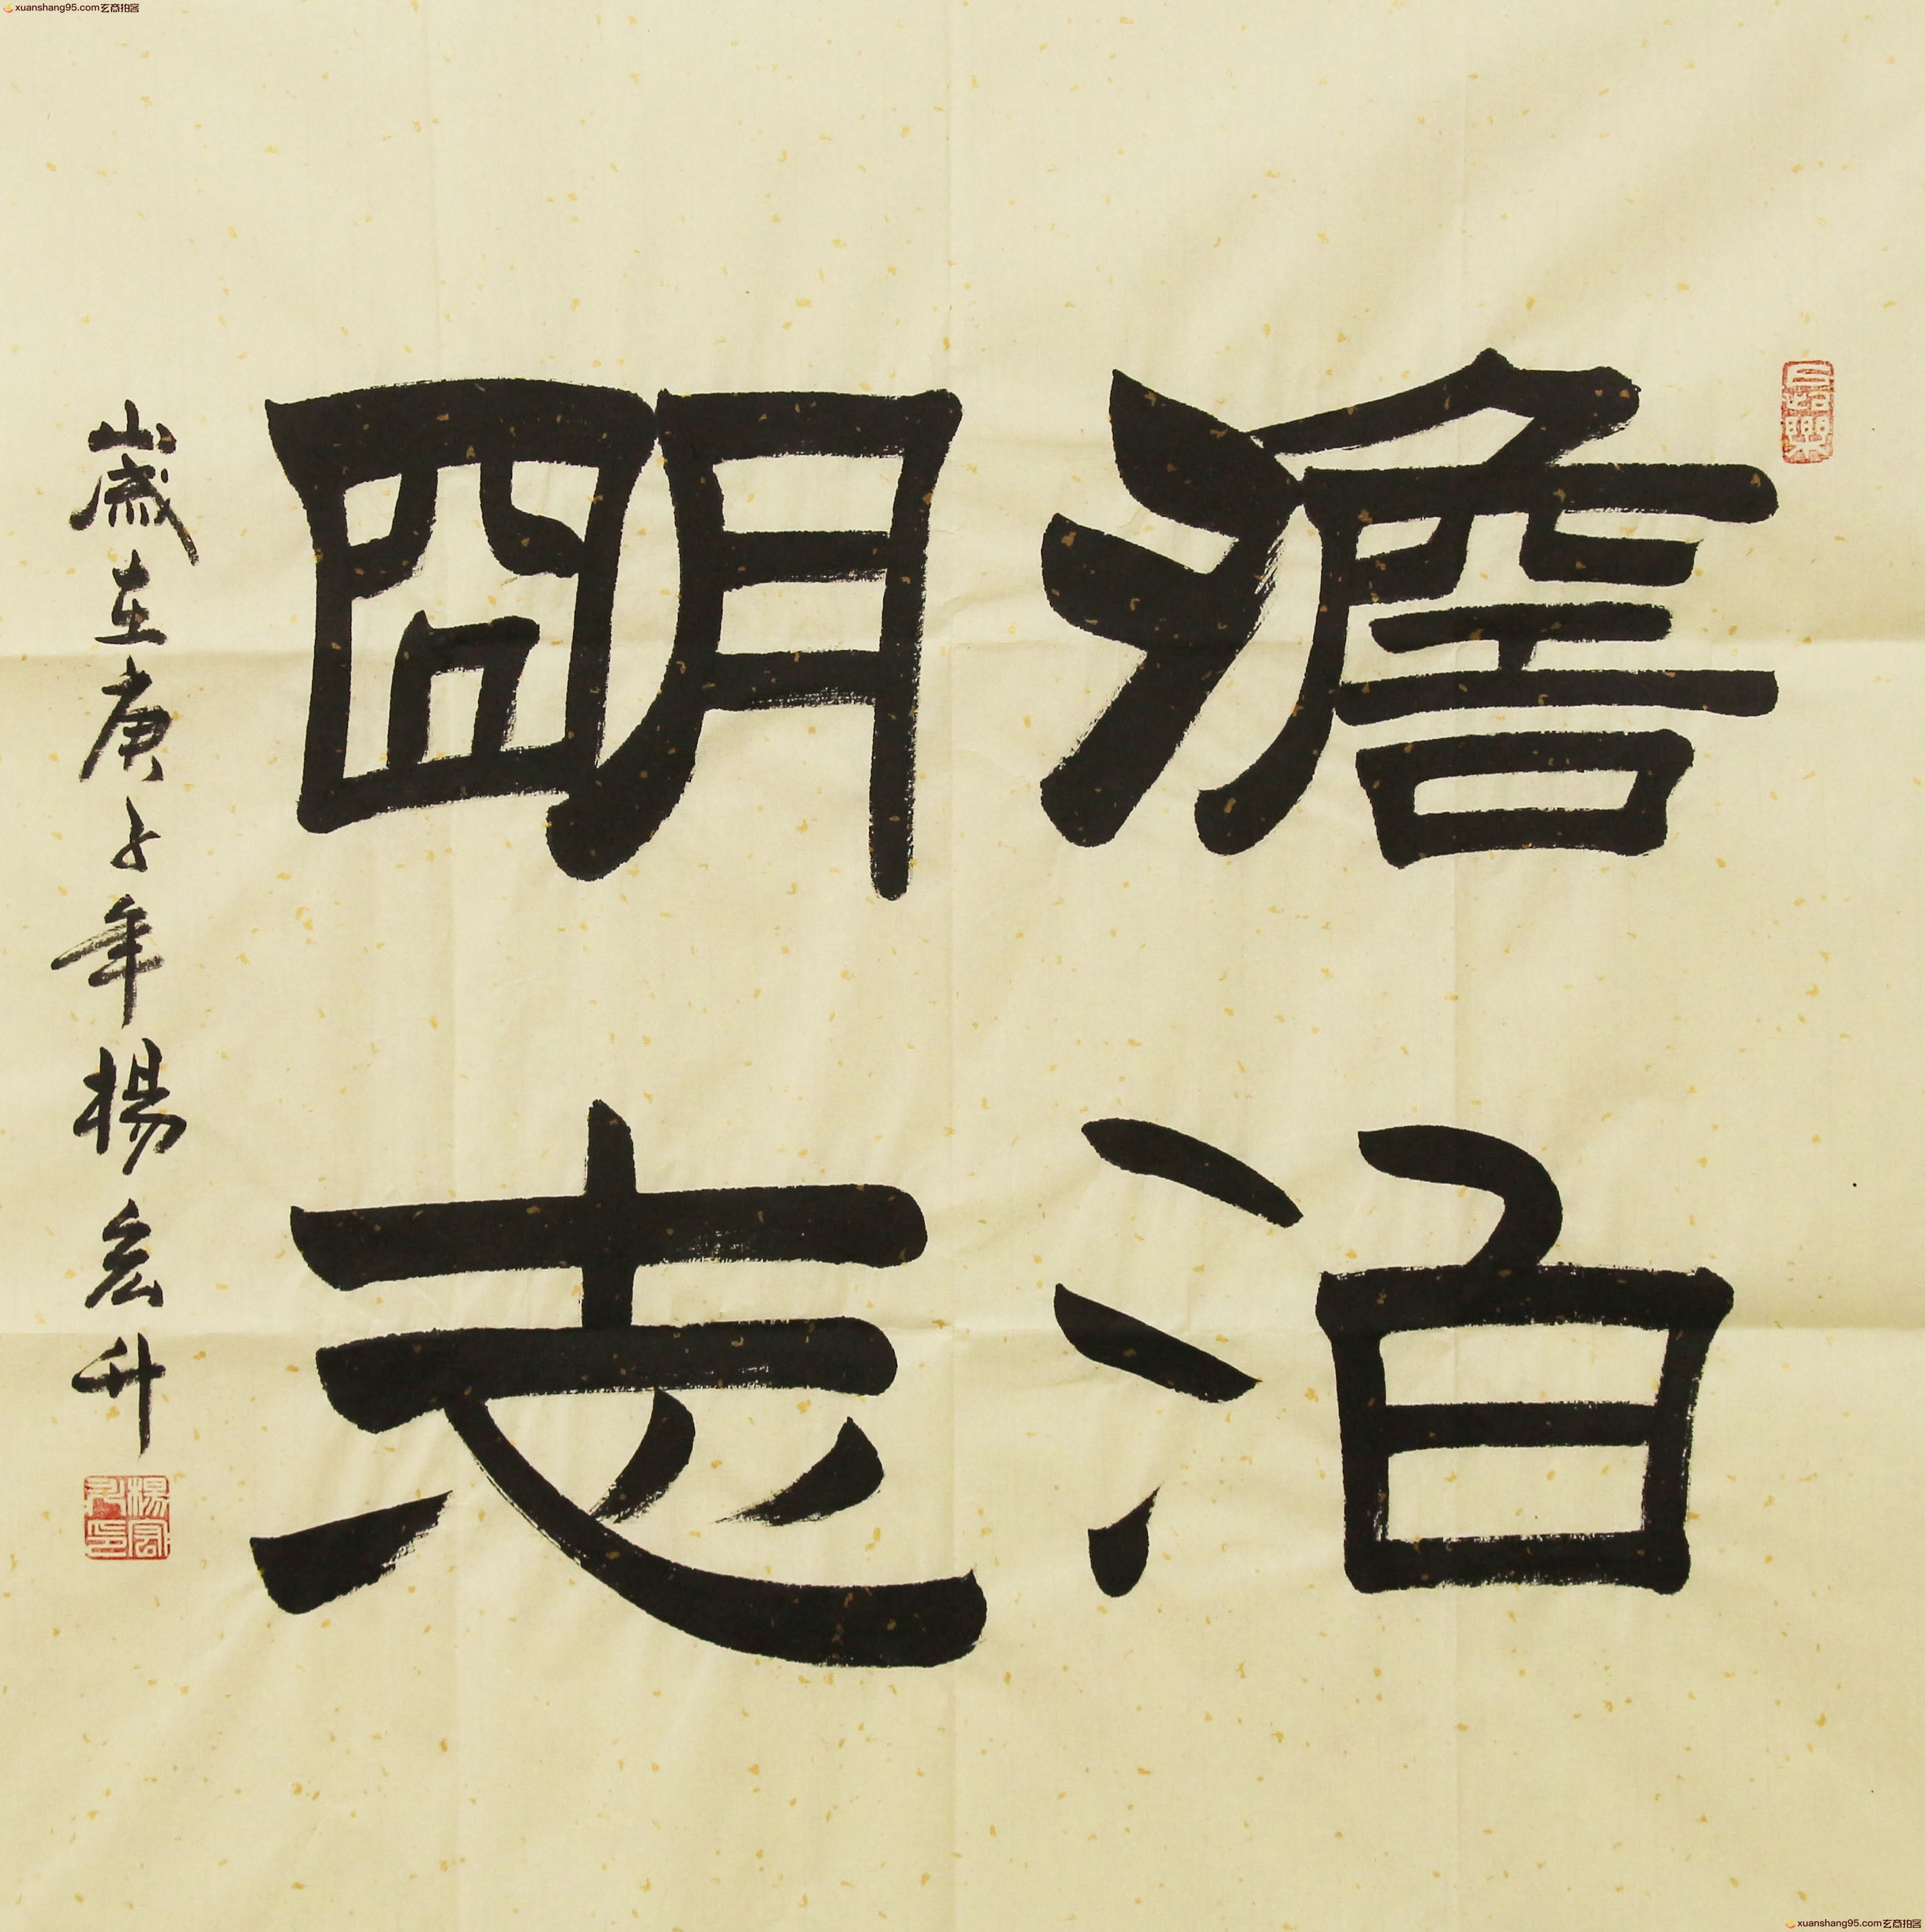 xuanshang95.com玄商拍客
澹泊
朙志
歲在庚子年楊宏升
xuanshang95.com玄商拍客